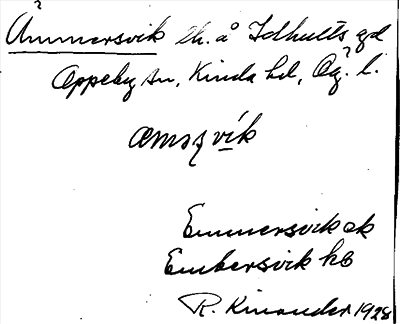 Ämmersvik lh. å Idhults gd
Oppeby sn, Kinda hd, Ög. l.
æmsʒvík
Emmersvik ek
Embersvik hb
R. Kinander 1928